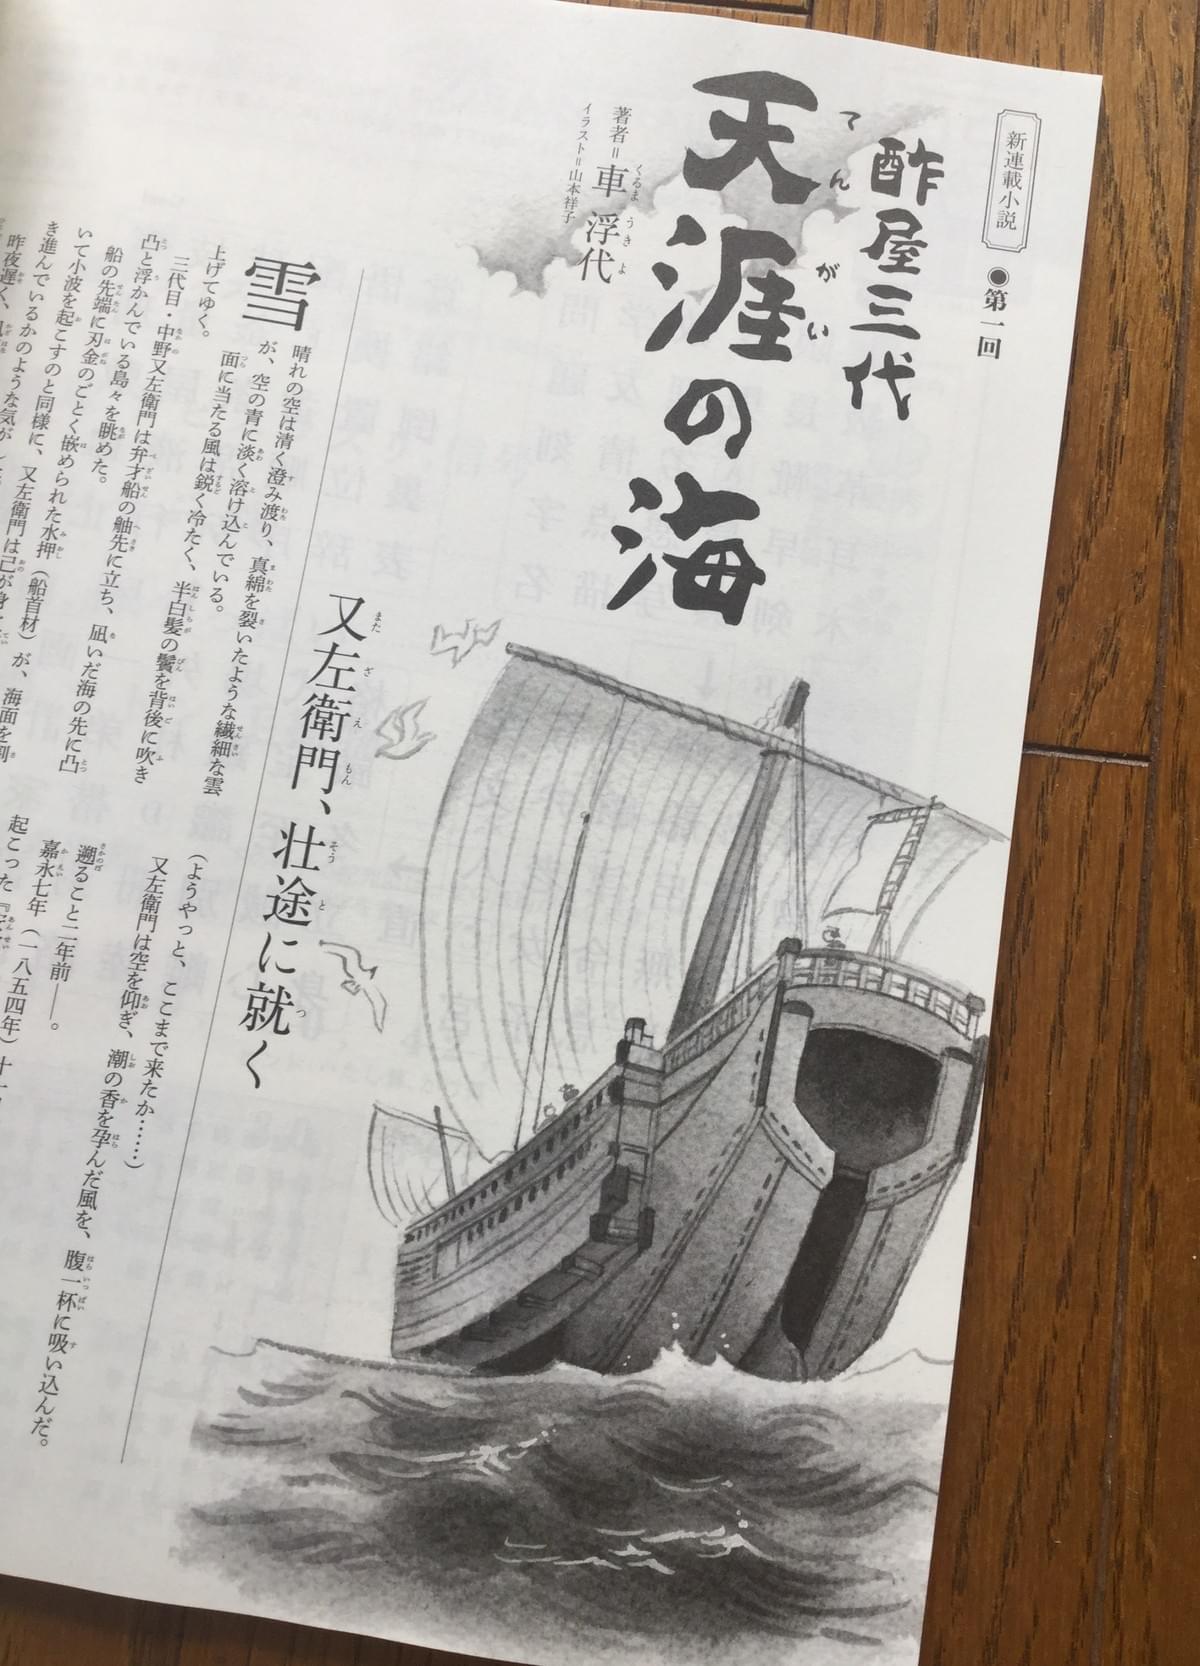 新連載小説
●第一回
酢屋三代
天涯の海
てんがい
著者＝車 浮代
くるま うきよ
イラスト＝山本祥子
又左衛門、壮途に就く
またざえもん そうと つ
雪晴れの空は清く澄み渡り、真綿を裂いたような繊細な雲
が、空の青に淡く溶け込んでいる。
面に当たる風は鋭く冷たく、半白髪の鬢を背後に吹き
上げてゆく。
三代目・中野又左衛門は弁才船の舳先に立ち、凪いだ海の先に凸
凸と浮かんでいる島々を眺めた。
船の先端に刃金のごとく嵌められた水押（船首材）が、海面を割
いて小波を起こすのと同様に、又左衛門は己が身
き進んでいるかのような気が
昨夜遅く、
（ようやっと、ここまで来たか……）
又左衛門は空を仰ぎ、潮の香を孕んだ風を、腹一杯に吸い込んだ。
遡ること二年前――。
嘉永七年（一八五四年）十一
起こった『安政